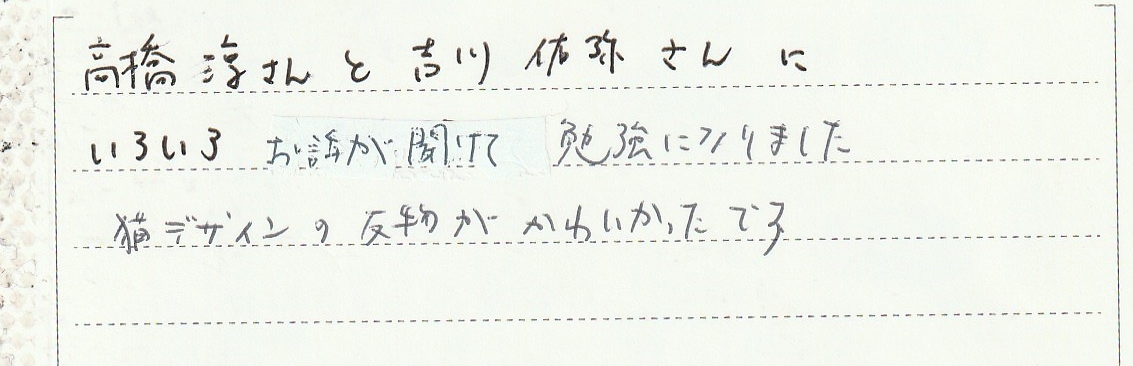 高橋淳さんと吉川佑弥さんに
いろいろお話が聞けて勉強になりました
猫デザインの反物がかわいかったです